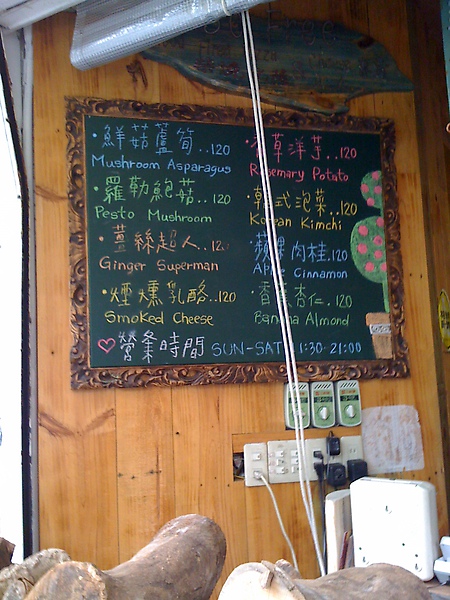 •鮮菇蘆筍..120
Mushroom Asparagus
•羅勒鮑菇..120
Pesto Mushroom
•薑絲超人..12
Ginger Superman
•煙燻乳酪...120
Smoked Cheese
草洋芋..120
Rosemary Potato
韓式泡菜..120
Korean Kimchi
蘋果肉桂.120
Apple Cinnamon
香蕉杏仁.120
Banana Almond
♡營業時間 SUN-SAT 1:30-21:00